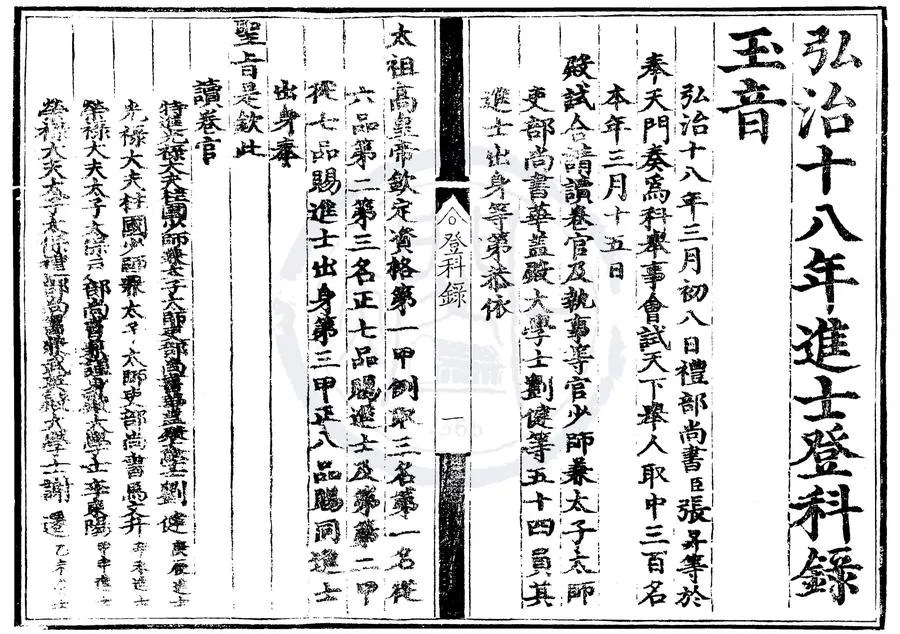 弘治十八年進士登科錄
玉音
弘治十八年三月初八日禮部尚書臣張昇等於
奉天門奏爲科舉事會試天下舉人取中三百名
本年三月十五日
殿試合請讀卷官及執事等官少師兼太子太師
吏部尚書華蓋殿大學士劉健等五十四員其
進士出身等第恭依
登科錄
一
太祖高皇帝欽定資格第一甲例取三名第一名從
六品第二第三名正七品賜進士及第第二甲
從七品賜進士出身第三甲正八品賜同進士
出身奉
聖旨是欽此
讀卷官
特進光祿大夫柱國少師兼太子太師吏部尚書華蓋殿大學士劉健 庚辰進士
光祿大夫柱國少師兼太子太師吏部尚書馬文升 辛未進士
榮祿大夫太子太保戶部尚書兼謹身殿大學士李東陽 甲申進士
榮祿大夫太子太保禮部尚書兼武英殿大學士謝遷 乙未進士